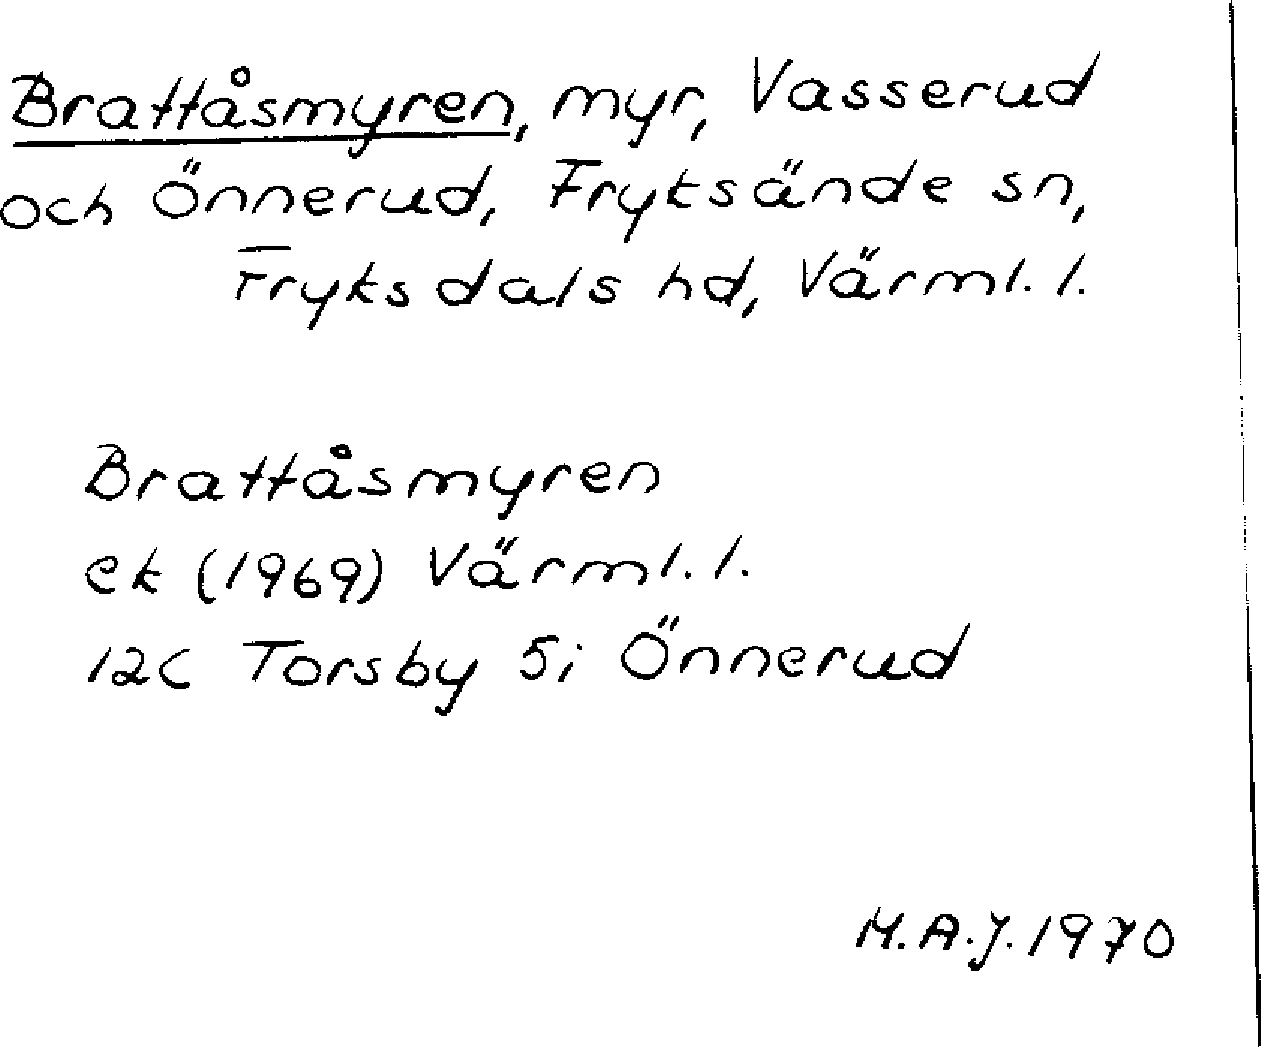 Brattåsmyren, myr, Vasserud
och Önnerud, Fryksände sn,
Fryksdals hd, Värml. l.
Brattåsmyren
ek (1969) Värml. l.
12C Torsby 5i Önnerud
M.A.J. 1970